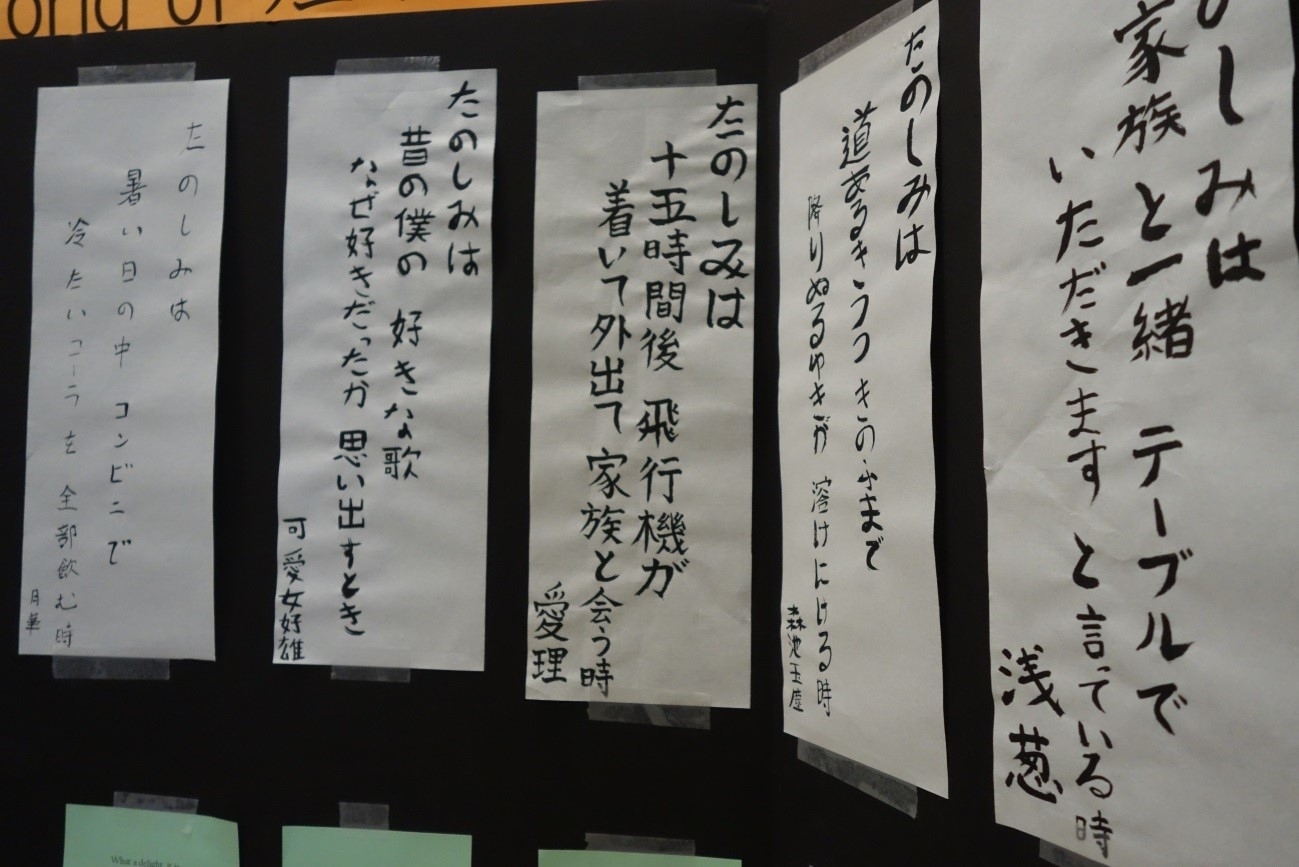 orld of
しみは
家族と一緒 テーブルで
いただきます と言っている時
浅葱
たのしみは
道あるきうつきのふまで
降りぬるゆきが 溶けにける時
たのしみは
十五時間後 飛行機が
着いて外出て 家族と会う時
愛理
たのしみは
昔の僕の 好きな歌
なぜ好きだったか 思い出すとき
可愛女好雄
たのしみは
暑い日の中 コンビニで
冷たいコーラを 全部飲む時
月華
What a delight, it is